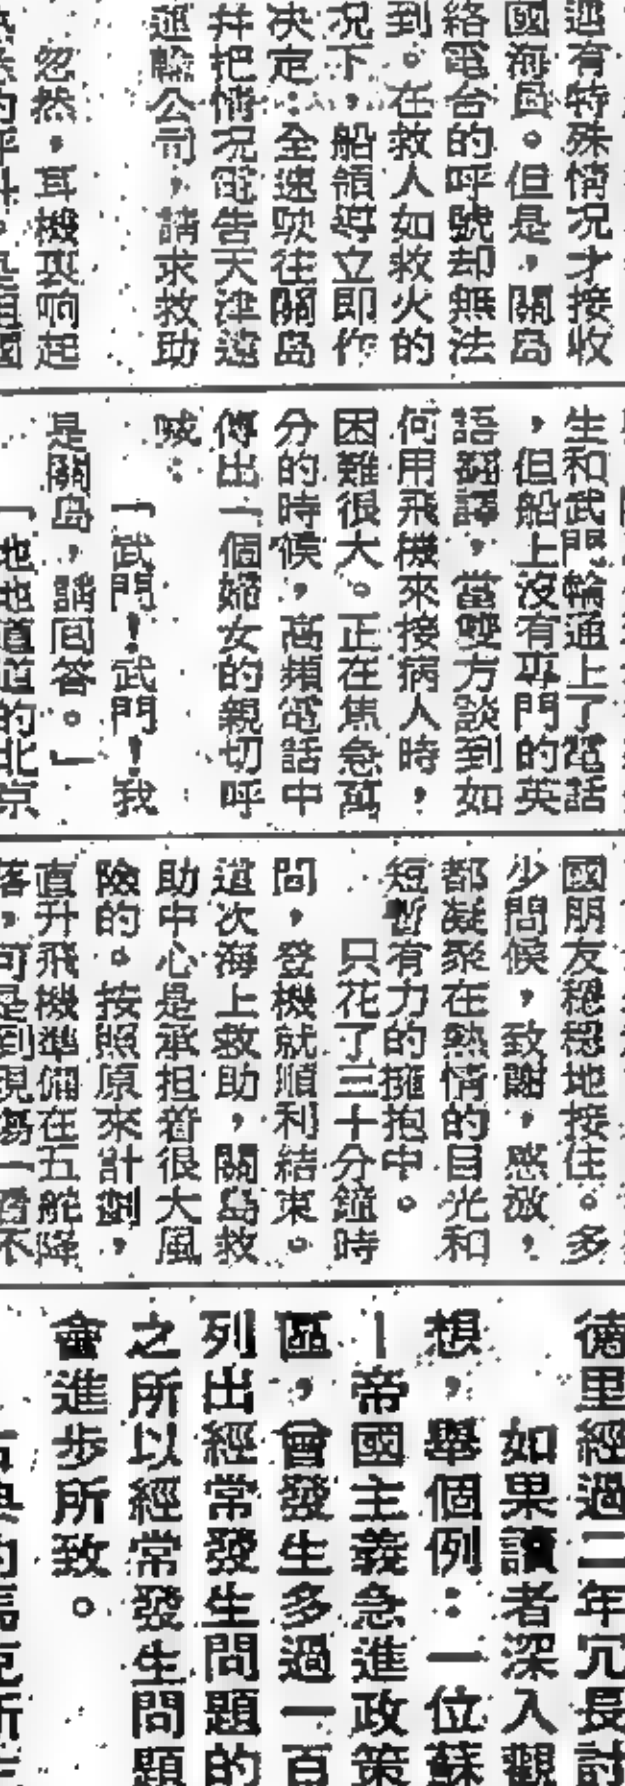 還有特殊情况才接收
國海員。但是，關岛
絡電台的呼號却無法
到。在救人如救火的
况下，船領導立即作
决定：全速駛往關岛
并把情况電告天津遠
運輸公司，請求救助
忽然，耳機裏响起
生和武門輪通上了電話
，但船上沒有專門的英
語翻譯，當雙方談到如
何用飛機來接病人時，
困難很大。正在焦急萬
分的時候，高頻電話中
傳出一個婦女的親切呼
喊：
「武門！武門！我
是關岛，請回答。」
「地地道道的北京
國朋友穩穩地接住。多
少問候，致謝，感激，
都凝聚在熱情的目光和
短暫有力的擁抱中。
只花了三十分鐘時
間，登機就順利結束。
這次海上救助，關島救
助中心是承担着很大風
險的。按照原來計劃，
直升飛機準備在五舵降
落，可是到現場一看不
德里經過二年冗長討
如果讀者深入觀
想，舉個例：一位蘇
—帝國主義急進政策
區，曾發生多過一百
列出經常發生問題的
之所以經常發生問題
會進步所致。